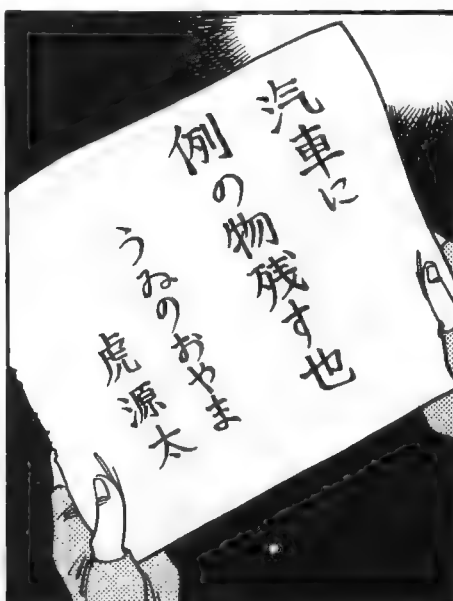 汽車に
例の物残す也
うゐのおやま
虎源太